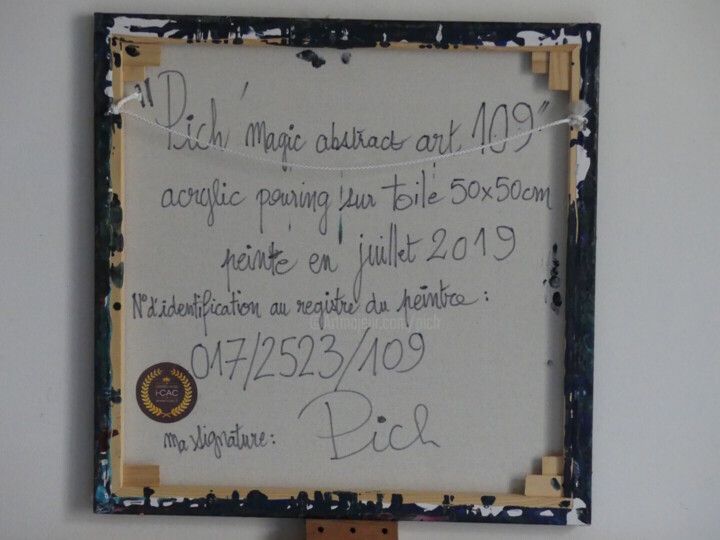 "Pich' magic abstract art 109"
acrylic pouring sur toile 50x50cm
peinte en juillet 2019
N° d'identification au registre du peintre :
© Artmajeur.com/pich
017/2523/109
i-CAC
ma signature: Pich